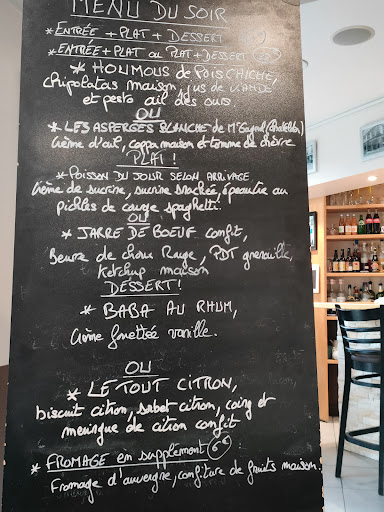 MENU DU SOIR
* ENTRÉE + PLAT + DESSERT
* ENTRÉE + PLAT OU PLAT + DESSERT
* HOUMOUS de POIS CHICHE,
chipolatas maison, jus de VIANDE
et pesto ail des ours
OU
* LES ASPERGES BLANCHE de Mr
Crème d'ail, coppa maison et tomme de chèvre
PLAT!
* POISSON DU JOUR SELON ARRIVAGE
Crème de sucrine, sucrine snackée, épeautre au
pickles de courge spaghetti.
OU
* JARRE DE BOEUF confit,
Beurre de chou Rouge, PDT grenaille,
Ketchup maison
DESSERT!
* BABA AU RHUM,
Crème fouettée vanille.
OU
* LE TOUT CITRON,
biscuit citron, sorbet citron, coing et
meringue de citron confit
* FROMAGE en supplément 6€ :
Fromage d'auvergne, confiture de fruits maison.